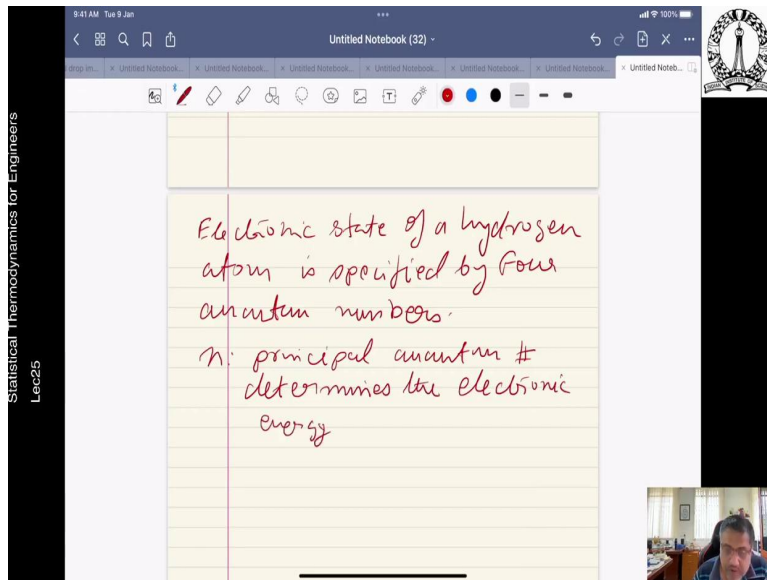 9:41 AM Tue 9 Jan
100%
Untitled Notebook (32)
drop im...
Untitled Notebook...
Untitled Notebook...
Untitled Notebook...
Untitled Notebook...
Untitled Notebook...
Untitled Notebook...
Untitled Noteb...
T
Statistical Thermodynamics for Engineers
Lec25
Electronic state of a hydrogen
atom is specified by Four
quantum numbers.
n: principal quantum #
determines the electronic
energy